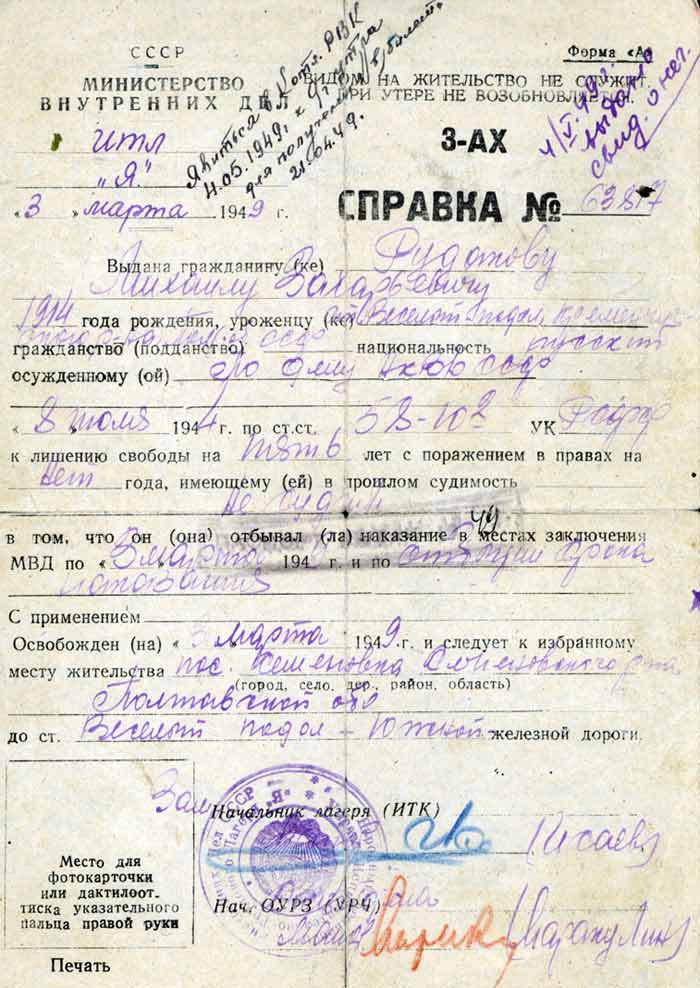 СССР
МИНИСТЕРСТВО
ВНУТРЕННИХ ДЕЛ
ИТЛ
"Я"
"3" марта 1949 г.
Явиться в РВК
4.05.1949 г. к 9 ч. утра
для получения
21.04.49.
Форма «А»
ВИДОМ НА ЖИТЕЛЬСТВО НЕ СЛУЖИТ
ПРИ УТЕРЕ НЕ ВОЗОБНОВЛЯЕТСЯ.
4/V.49 г.
выдано
свид. о
3-АХ
СПРАВКА №
Выдана гражданину (ке)
Михаилу Захарьевичу
1914 года рождения, уроженцу (ке) Веселый подол,
гражданство (подданство) СССР национальность русский
осужденному (ой)
"8" июля 1944 г. по ст.ст. 58-10 УК РСФСР
к лишению свободы на пять лет с поражением в правах на
нет года, имеющему (ей) в прошлом судимость
не судим
в том, что он (она) отбывал (ла) наказание в местах заключения
МВД по «3 марта 194 г. и по отбытии срока
наказания
49
С применением
Освобожден (на) « 3 марта 1949 г. и следует к избранному
месту жительства пос. Семеновка Семеновского р-на
(город, село, дер., район, область)
Полтавской обл
до ст. Веселый подол - Южной железной дороги.
Зам
Начальник лагеря (ИТК)
(Исаев)
Место для
фотокарточки
или дактилоот.
тиска указательного
пальца правой руки
Нач. ОУРЗ (УРЧ)
Печать